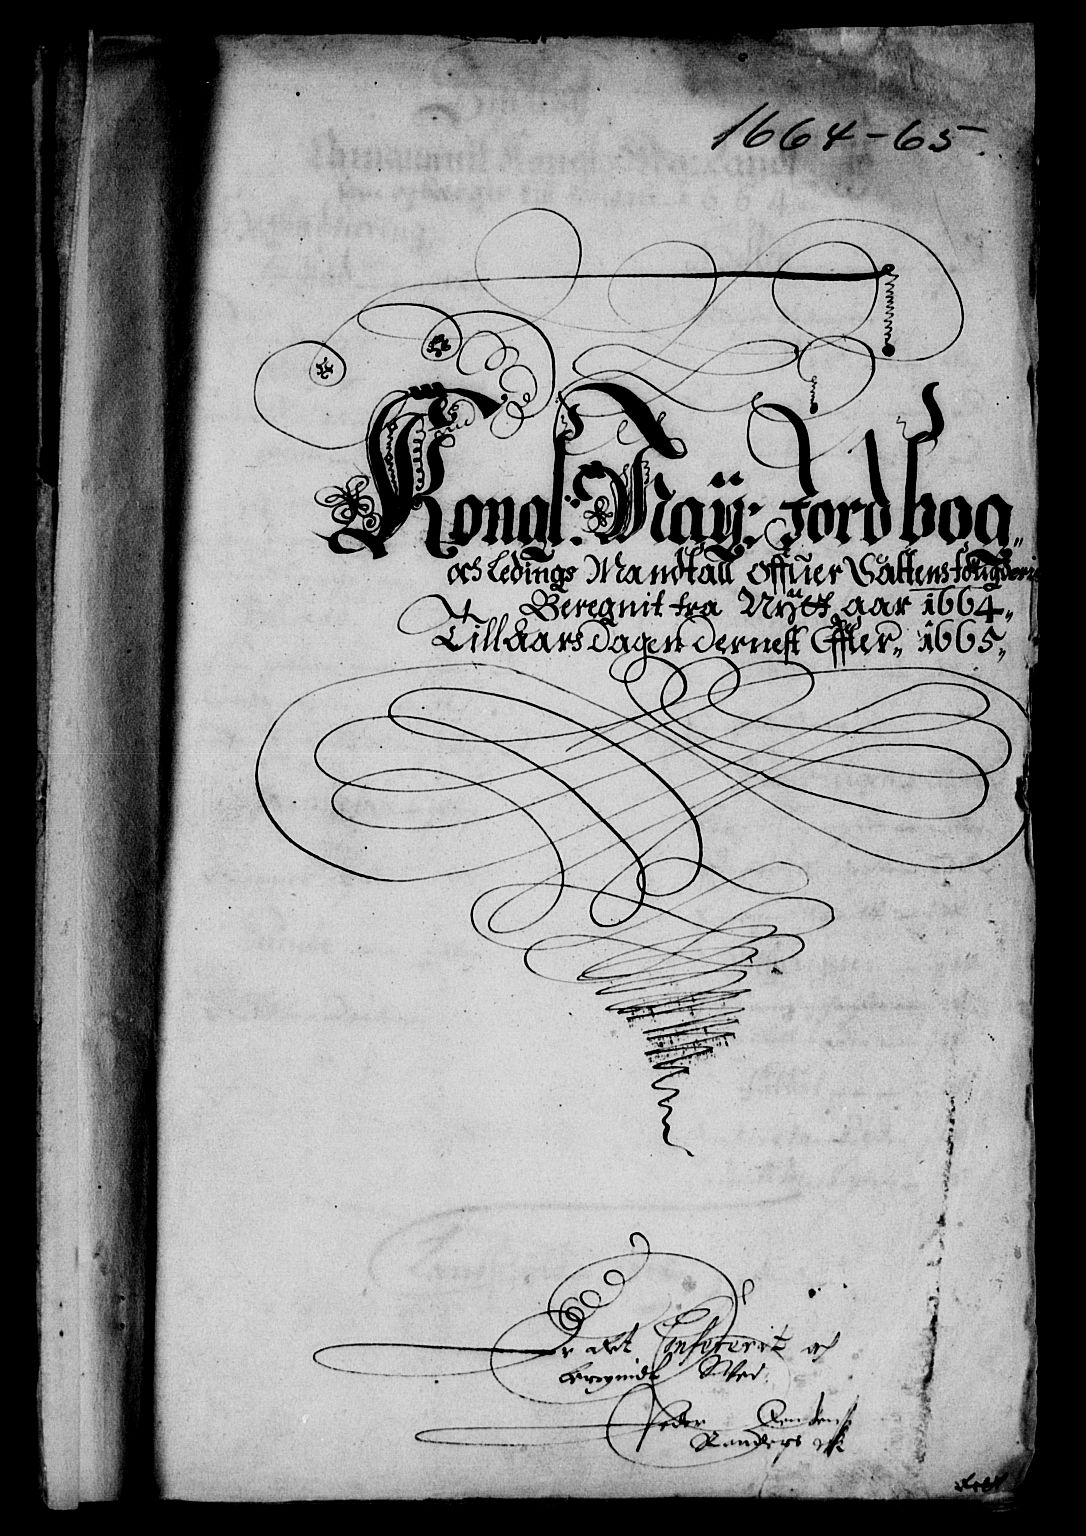 1664-65.
Kongl: Maÿ: Jordbog,,
och Ledings Mandtall offuer Saltens fougderi
Beregnit fra Nÿtt aar 1664,,
Till Aarsdagen dernest Effter,, 1665,,
Er det Confererit och
Peder